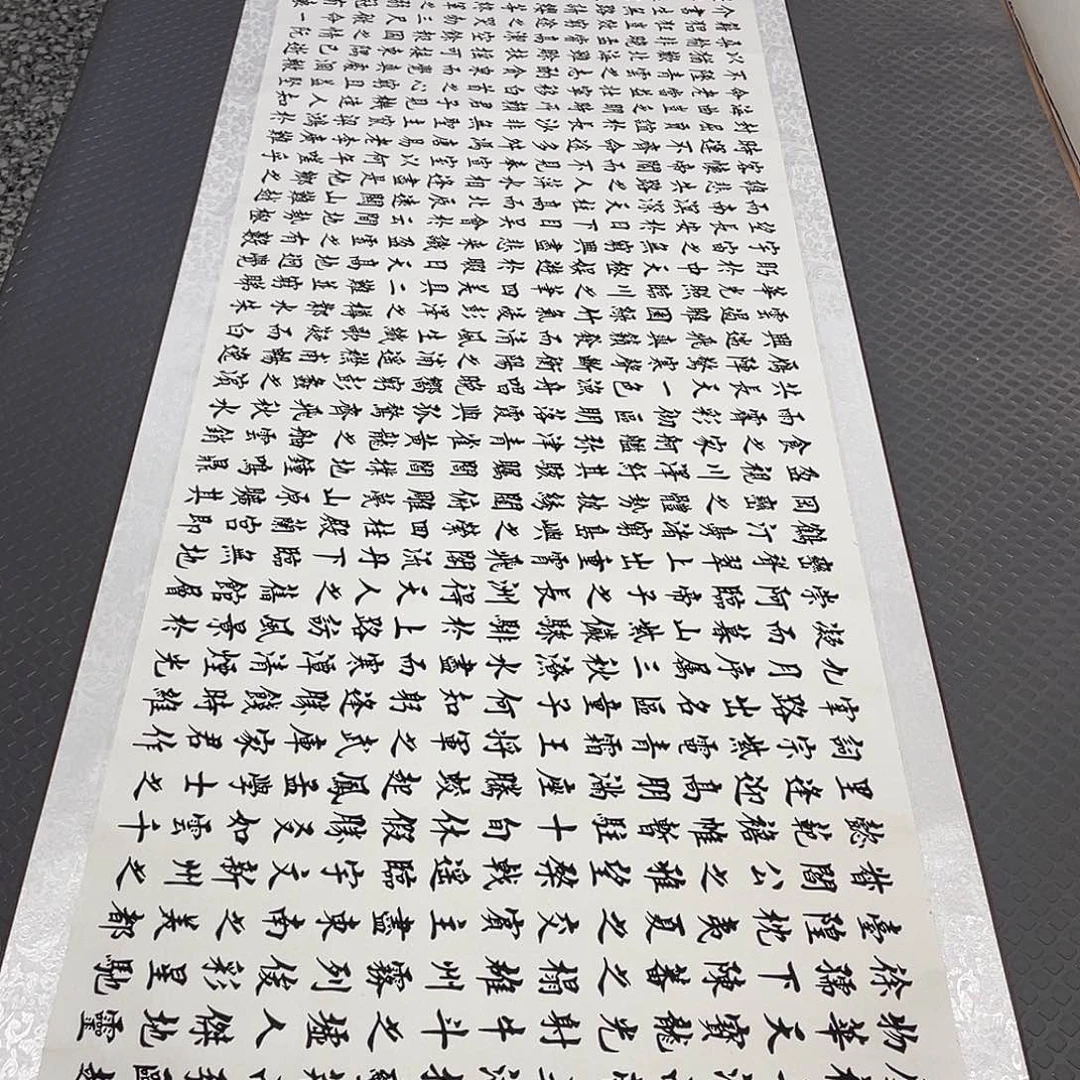 物華天寶龍光射牛斗之墟人傑地靈
徐孺下陳蕃之榻雄州霧列俊彩星馳
臺隍枕夷夏之交賓主盡東南之美都
督閻公之雅望棨戟遙臨宇文新州之
懿範襜帷暫駐十旬休假勝友如雲千
里逢迎高朋滿座騰蛟起鳳孟學士之
詞宗紫電青霜王將軍之武庫家君作
宰路出名區童子何知躬逢勝餞時維
九月序屬三秋潦水盡而寒潭清煙光
凝而暮山紫儼驂騑於上路訪風景於
崇阿臨帝子之長洲得天人之舊館層
巒聳翠上出重霄飛閣流丹下臨無地
鶴汀鳧渚窮島嶼之縈回桂殿蘭宮即
岡巒之體勢披繡闥俯雕甍山原曠其
盈視川澤紆其駭矚閭閻撲地鐘鳴鼎
食之家舸艦彌津青雀黃龍之舳雲銷
雨霽彩徹區明落霞與孤鶩齊飛秋水
共長天一色漁舟唱晚響窮彭蠡之濱
雁陣驚寒聲斷衡陽之浦遙襟甫暢逸
興遄飛爽籟發而清風生纖歌凝而白
雲遏睢園綠竹氣凌彭澤之樽鄴水朱
華光照臨川之筆四美具二難並窮睇
眄於中天極娛遊於暇日天高地迥覺
宇宙之無窮興盡悲來識盈虛之有數
望長安於日下目吳會於雲間地勢極
而南溟深天柱高而北辰遠關山難越
誰悲失路之人萍水相逢盡是他鄉之
客懷帝閽而不見奉宣室以何年嗟乎
時運不齊命途多舛馮唐易老李廣難
封屈賈誼於長沙非無聖主竄梁鴻於
海曲豈乏明時所賴君子見機達人知
命老當益壯寧移白首之心窮且益堅
不墜青雲之志酌貪泉而覺爽處涸轍
以猶懽北海雖賒扶搖可接東隅已逝